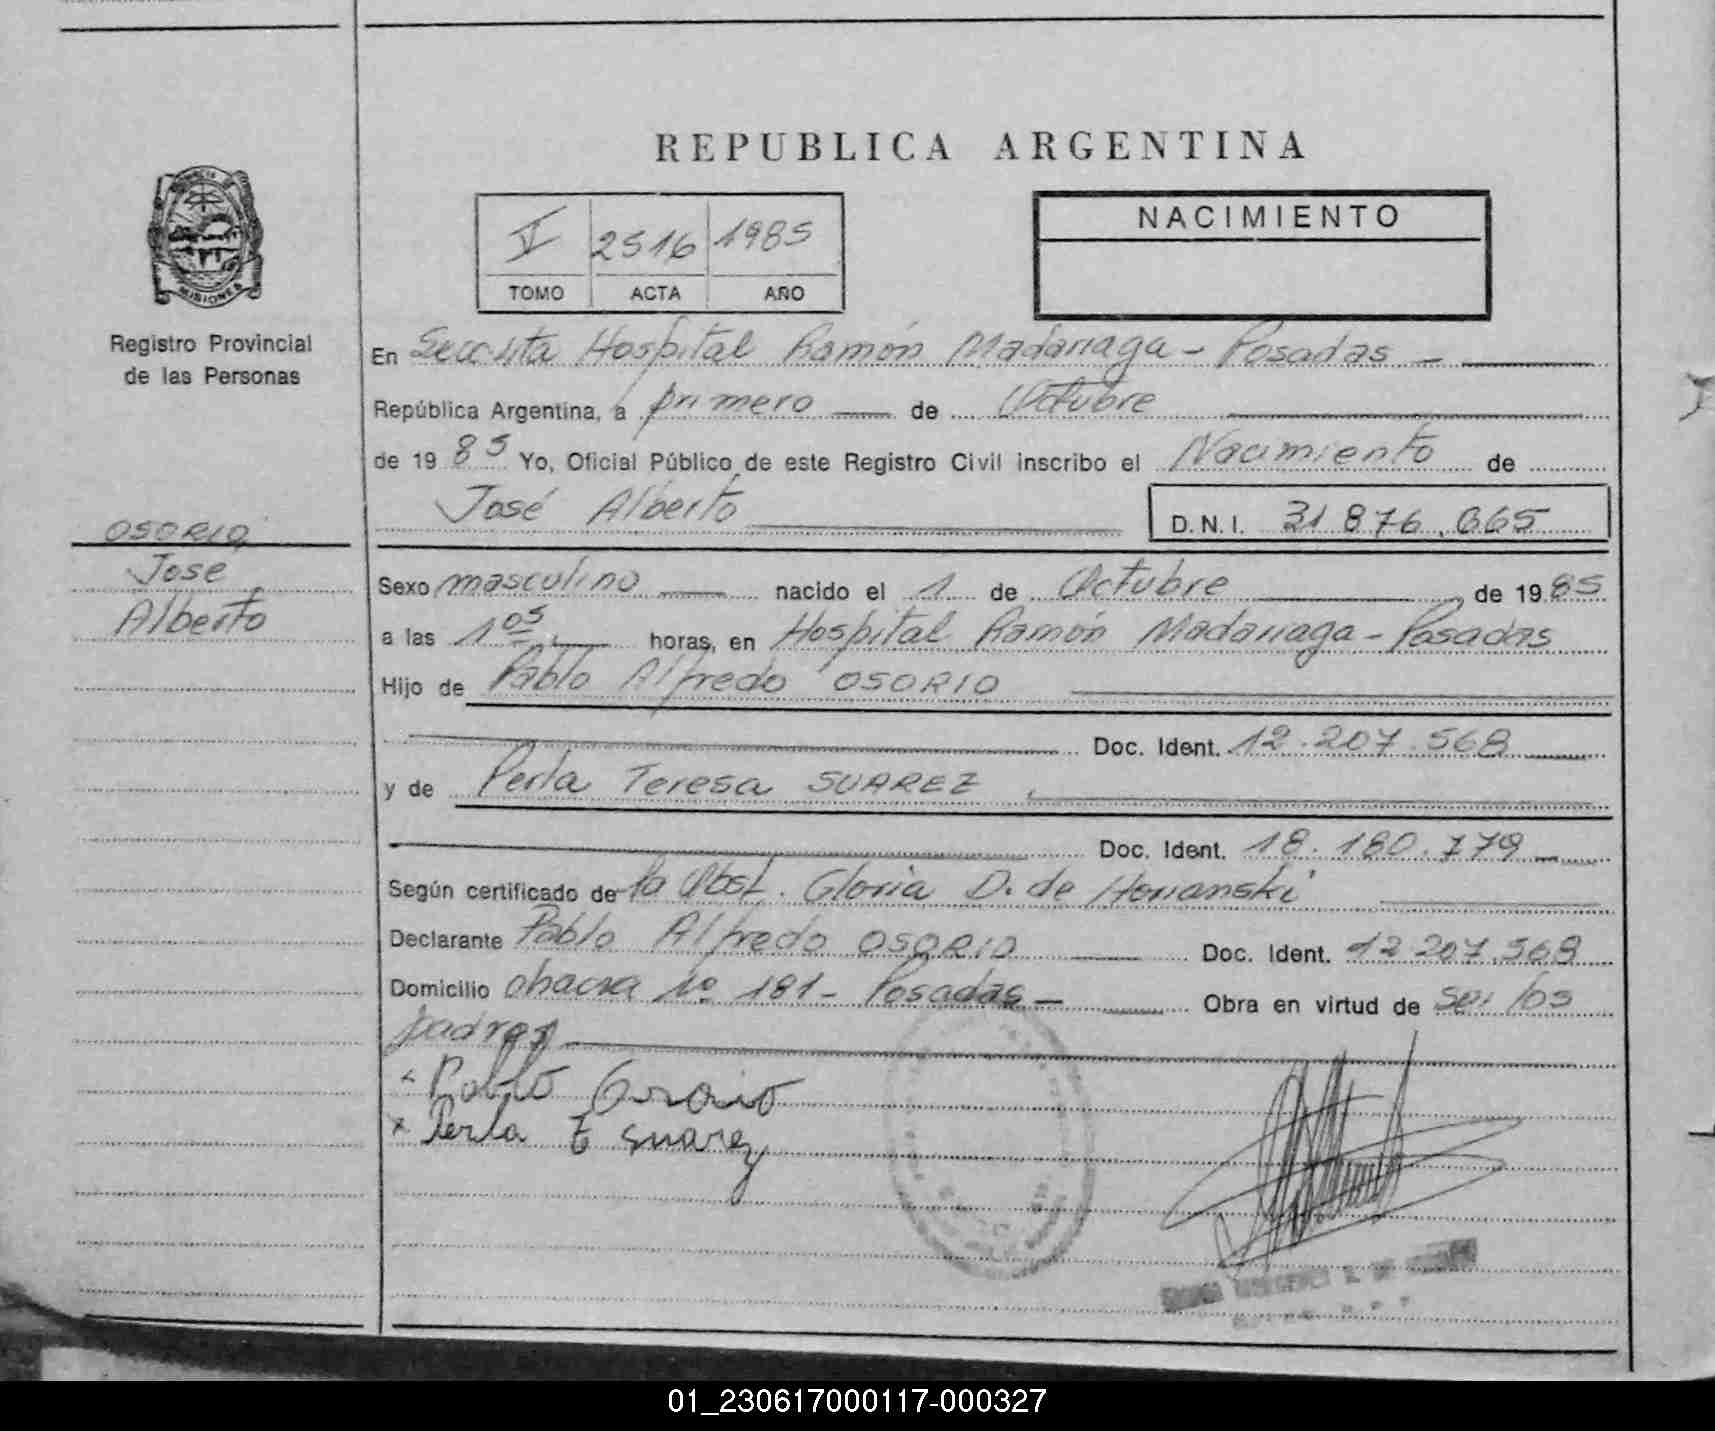 REPUBLICA ARGENTINA
V 2516 1985
TOMO ACTA AÑO
NACIMIENTO
MISIONES
Registro Provincial
de las Personas
OSORIO,
José
Alberto
En Seccsita Hospital Ramón Madariaga - Posadas -
República Argentina, a primero de Octubre
de 1985 Yo, Oficial Público de este Registro Civil inscribo el Nacimiento de
José Alberto D.N.I. 31 876.665
Sexo masculino nacido el 1 de Octubre de 1985
a las 1 05 horas, en Hospital Ramón Madariaga - Posadas
Hijo de Pablo Alfredo OSORIO
Doc. Ident. 12.207.568
y de Perla Teresa SUAREZ
Doc. Ident. 18.180.779
Según certificado de la Obst. Gloria D. de
Declarante Pablo Alfredo OSORIO Doc. Ident. 12 207.568
Domicilio chacra Nº 181 - Posadas - Obra en virtud de ser los
padres
x Pablo Osorio
x Perla T Suarez
01_230617000117-000327